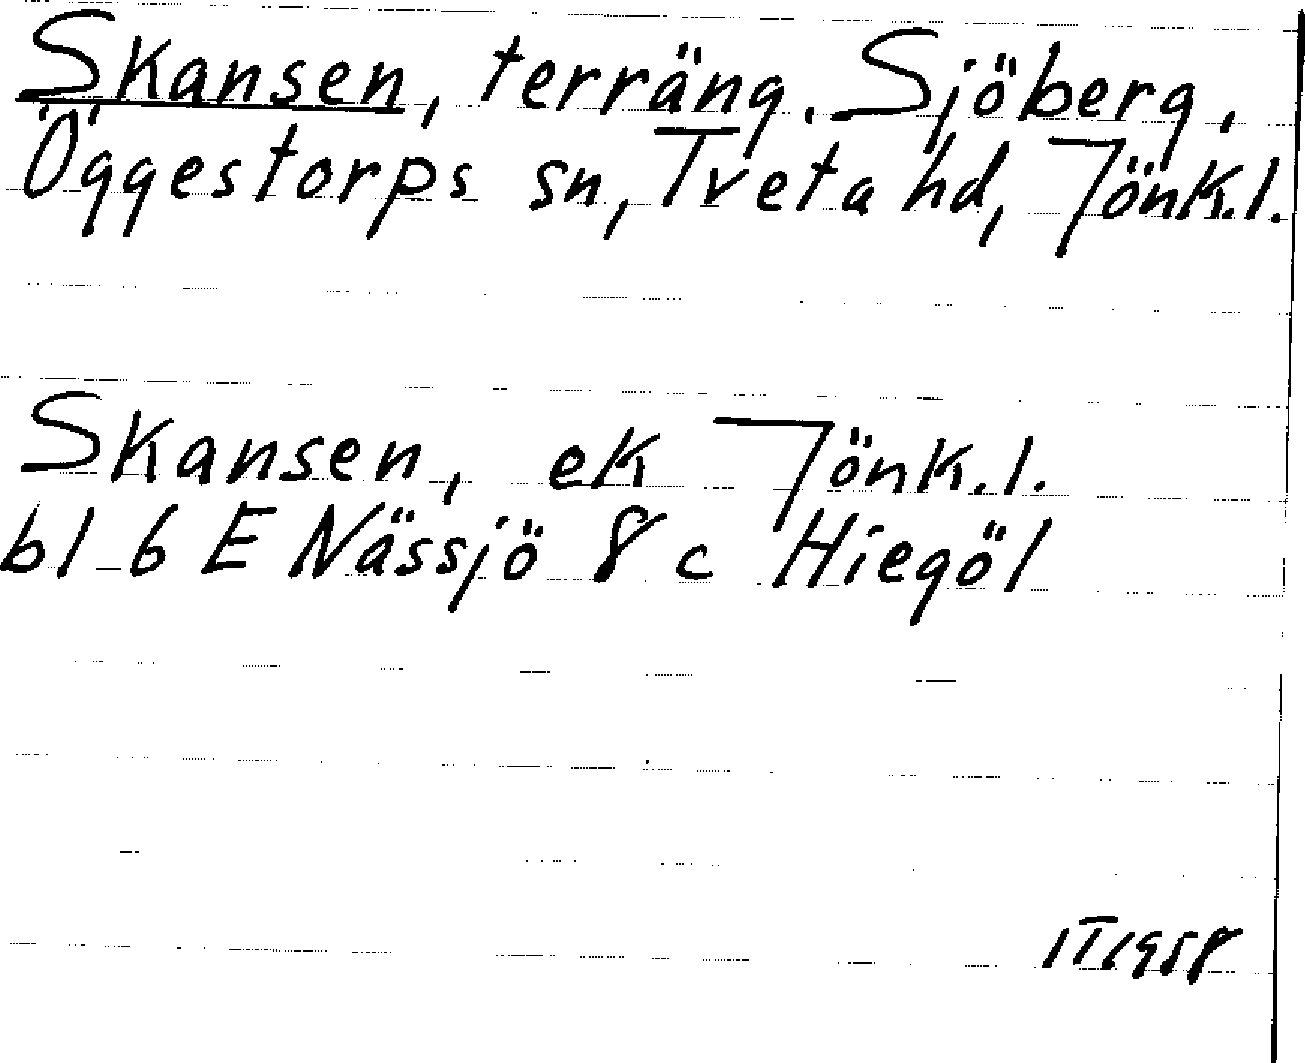 Skansen, terräng. Sjöberg,
Öggestorps sn, Tveta hd, Jönk.l.
Skansen, ek Jönk.l.
bl 6 E Nässjö 8 c Hiegöl